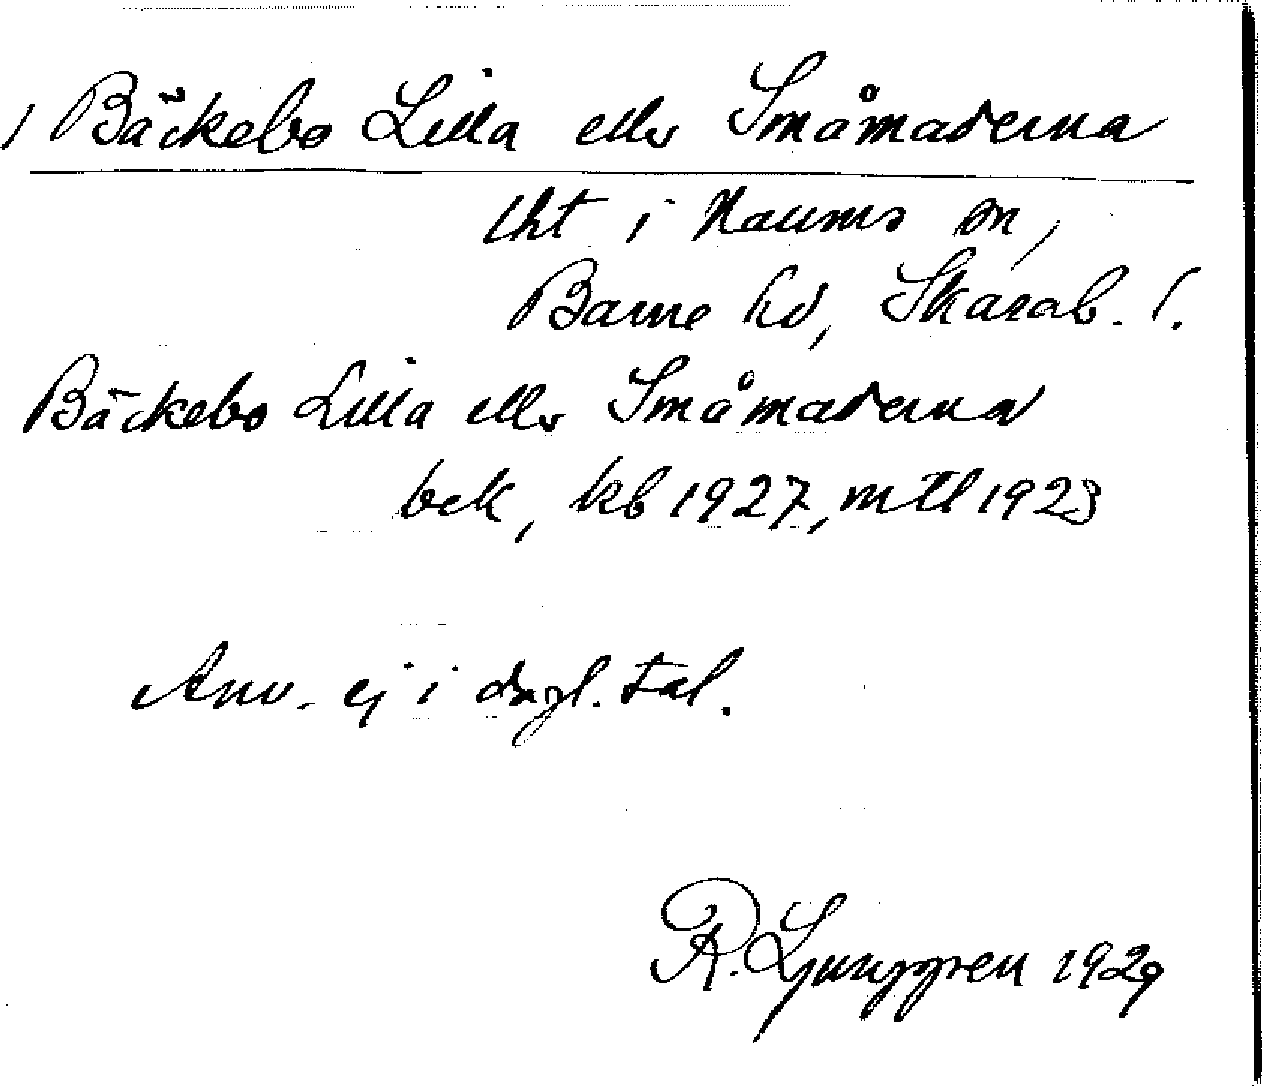 / Bäckebo Lilla eller Småmaderna
lht i Naums sn,
Barne hd, Skarab. l.
Bäckebo Lilla eller Småmaderna
bek, kb 1927, mtl 1923
Anv. ej i dagl. tal.
R. Ljunggren 1929